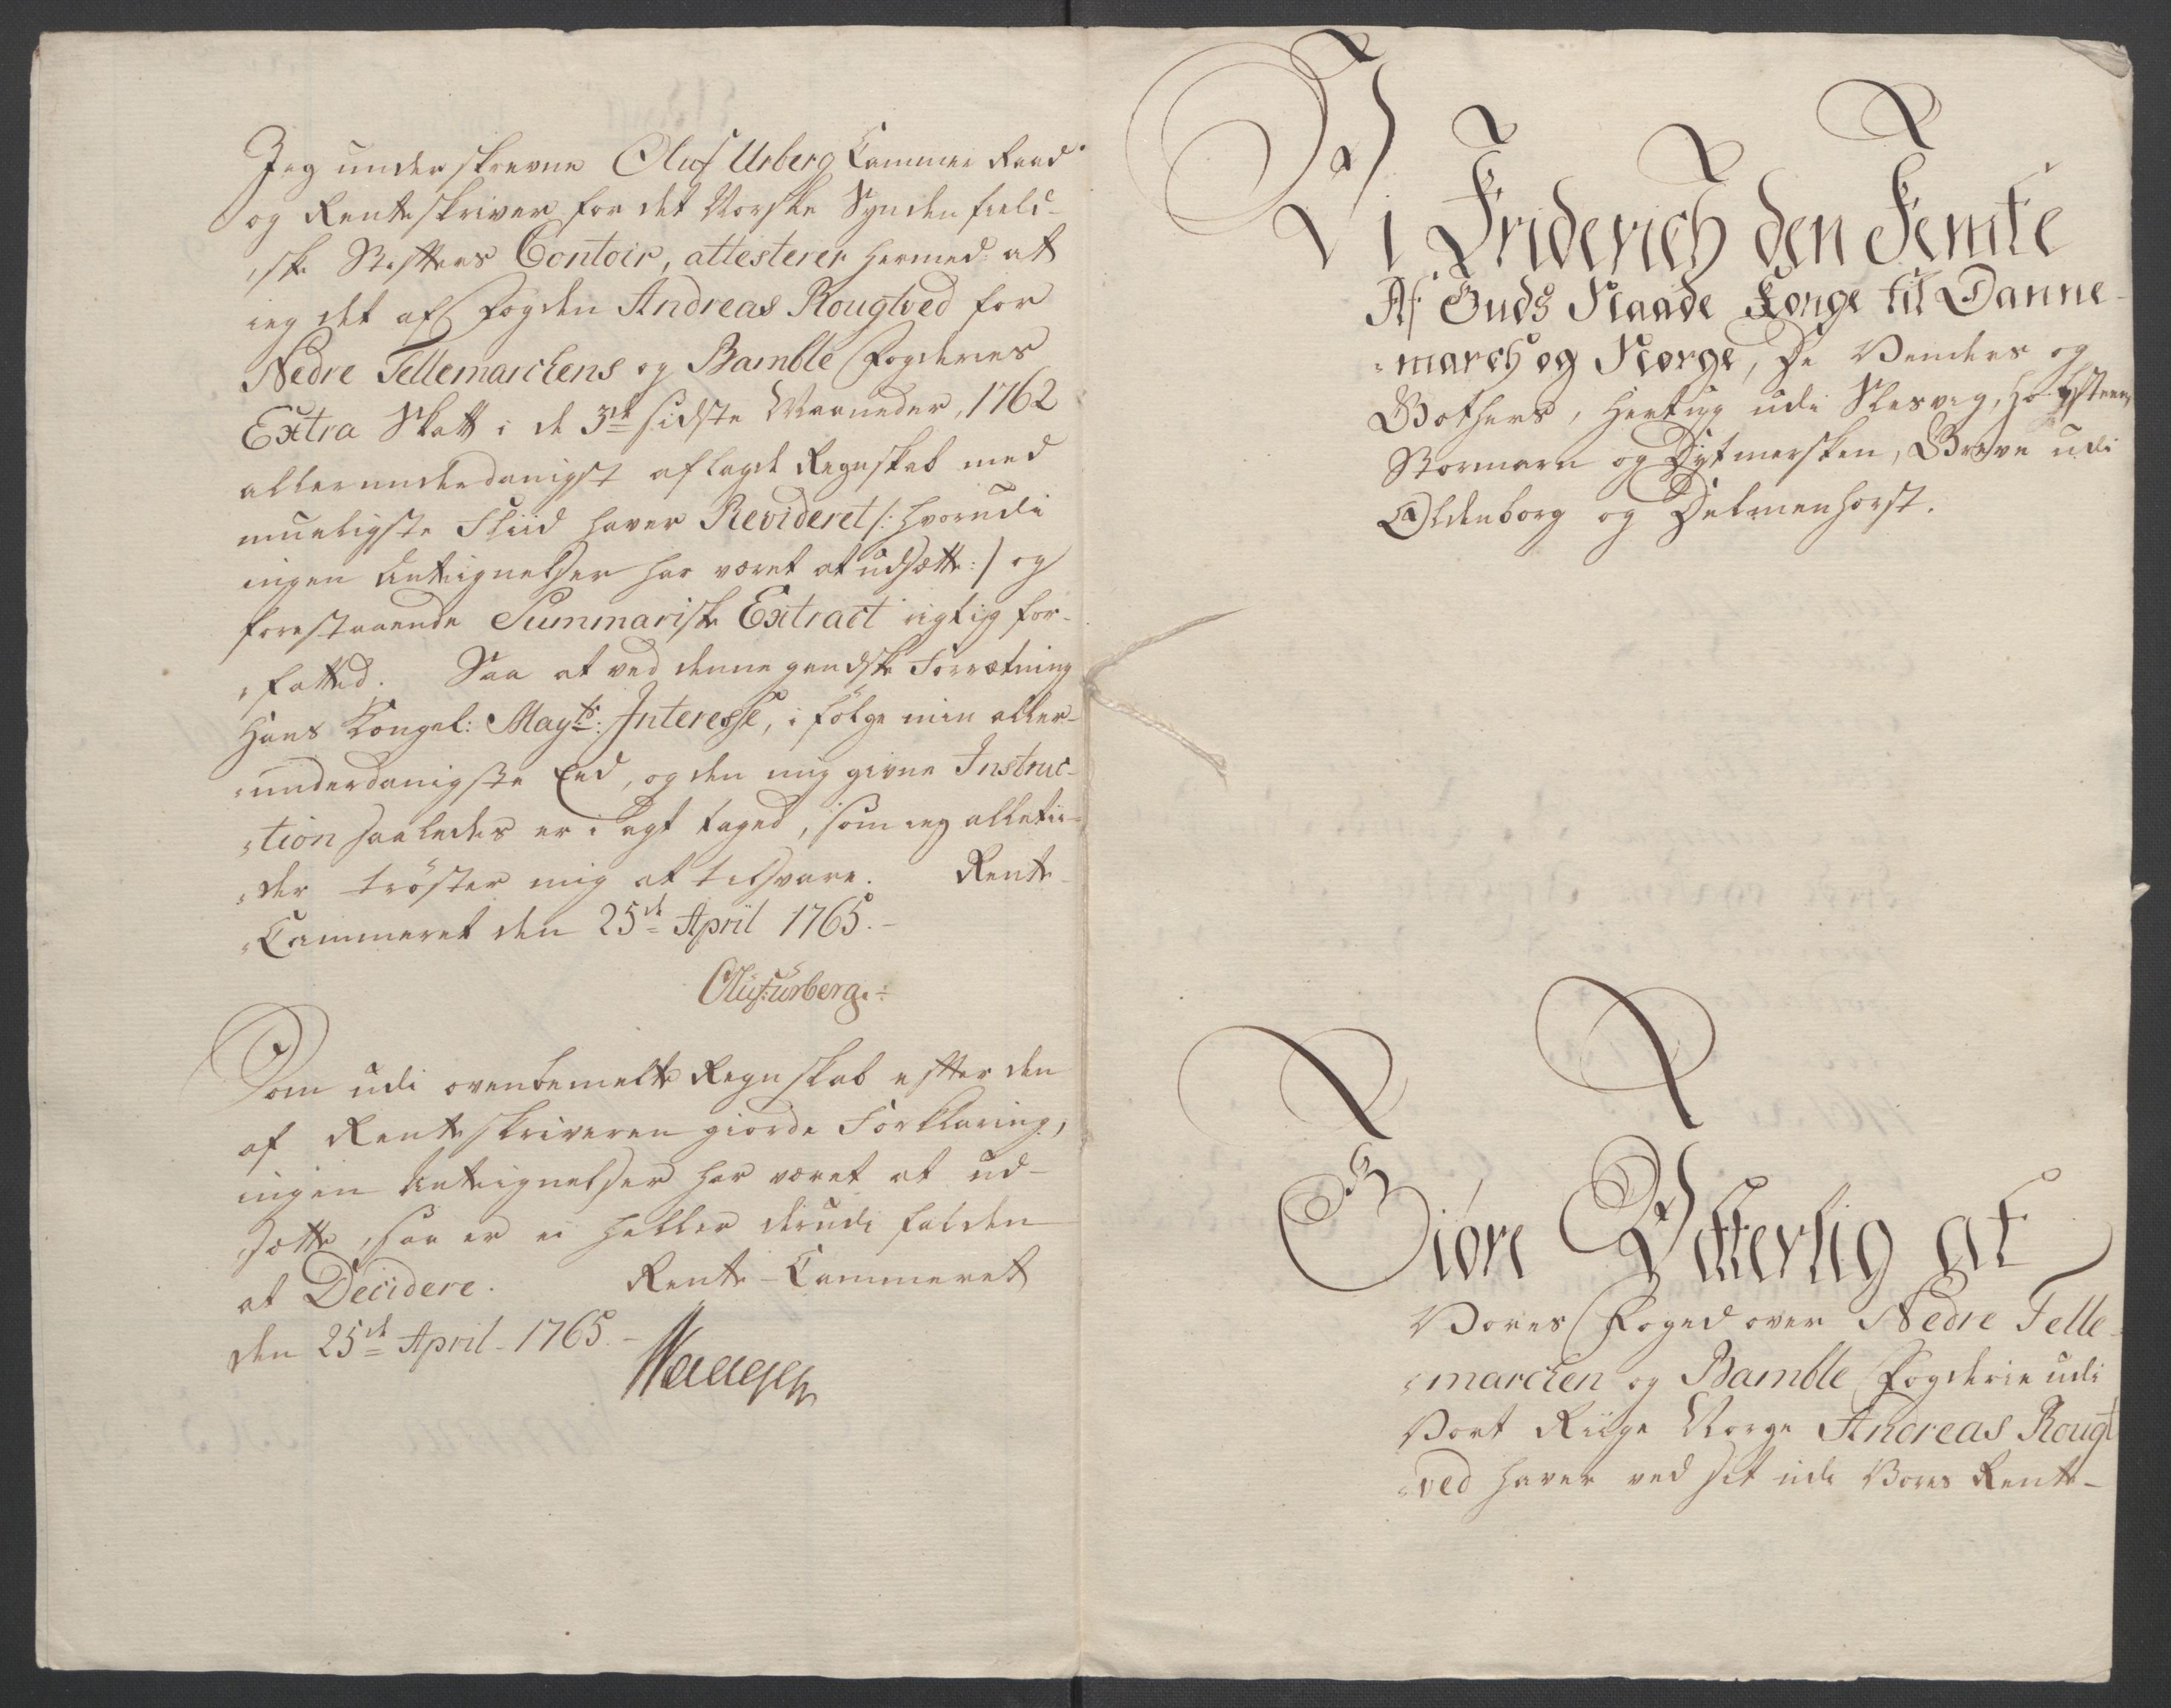 Jeg underskrevne Oluf Urberg Cammer Raad
og Renteskriver for det Norske Synden field-
ske Stifters Contoir, attesterer hermed at
ieg det af Fogden Andreas Rougtved for
Nedre Tellemarchens og Bamble Fogderies
Extra Skatt i de 3de sidste Maaneder, 1762
allerunderdanigst aflagde Regnskab med
mueligste Fliid haver Revideret /: hvorudi
ingen Antegnelser har været at udsætte :/ og
forestaaende Summariske Extract rigtig for-
fatted. Saa at ved denne gandske Forrætning
Hans Kongel: Mayts: Interesse, i følge min aller-
underdanigste Eed, og den mig givne Instruc-
tion saaledes er i agt taged, som ieg alletii-
der trøster mig at tilsvare. Rente-
Cammeret den 25de April 1765.-
Oluf Urberg.
Som udi ovenbemelte Regnskab efter den
af Renteskriveren giorde Forklaring,
ingen Antegnelser har været at ud-
sætte, saa er ei heller derudi falden
at Decidere. Rente-Cammeret
den 25de April 1765.-
Vi Friderich den Femte
Af Guds Naade Konge til Danne-
march og Norge, De Venders og
Gothers, Hertug udi Slesvig, Holsteen,
Stormarn og Dytmersken, Greve udi
Oldenborg og Delmenhorst.
Giøre Vitterlig at
Vores Foged over Nedre Telle-
marchen og Bamble Fogderie udi
Vort Riige Norge Andreas Rougt
ved haver ved sit udi Vores Rente-